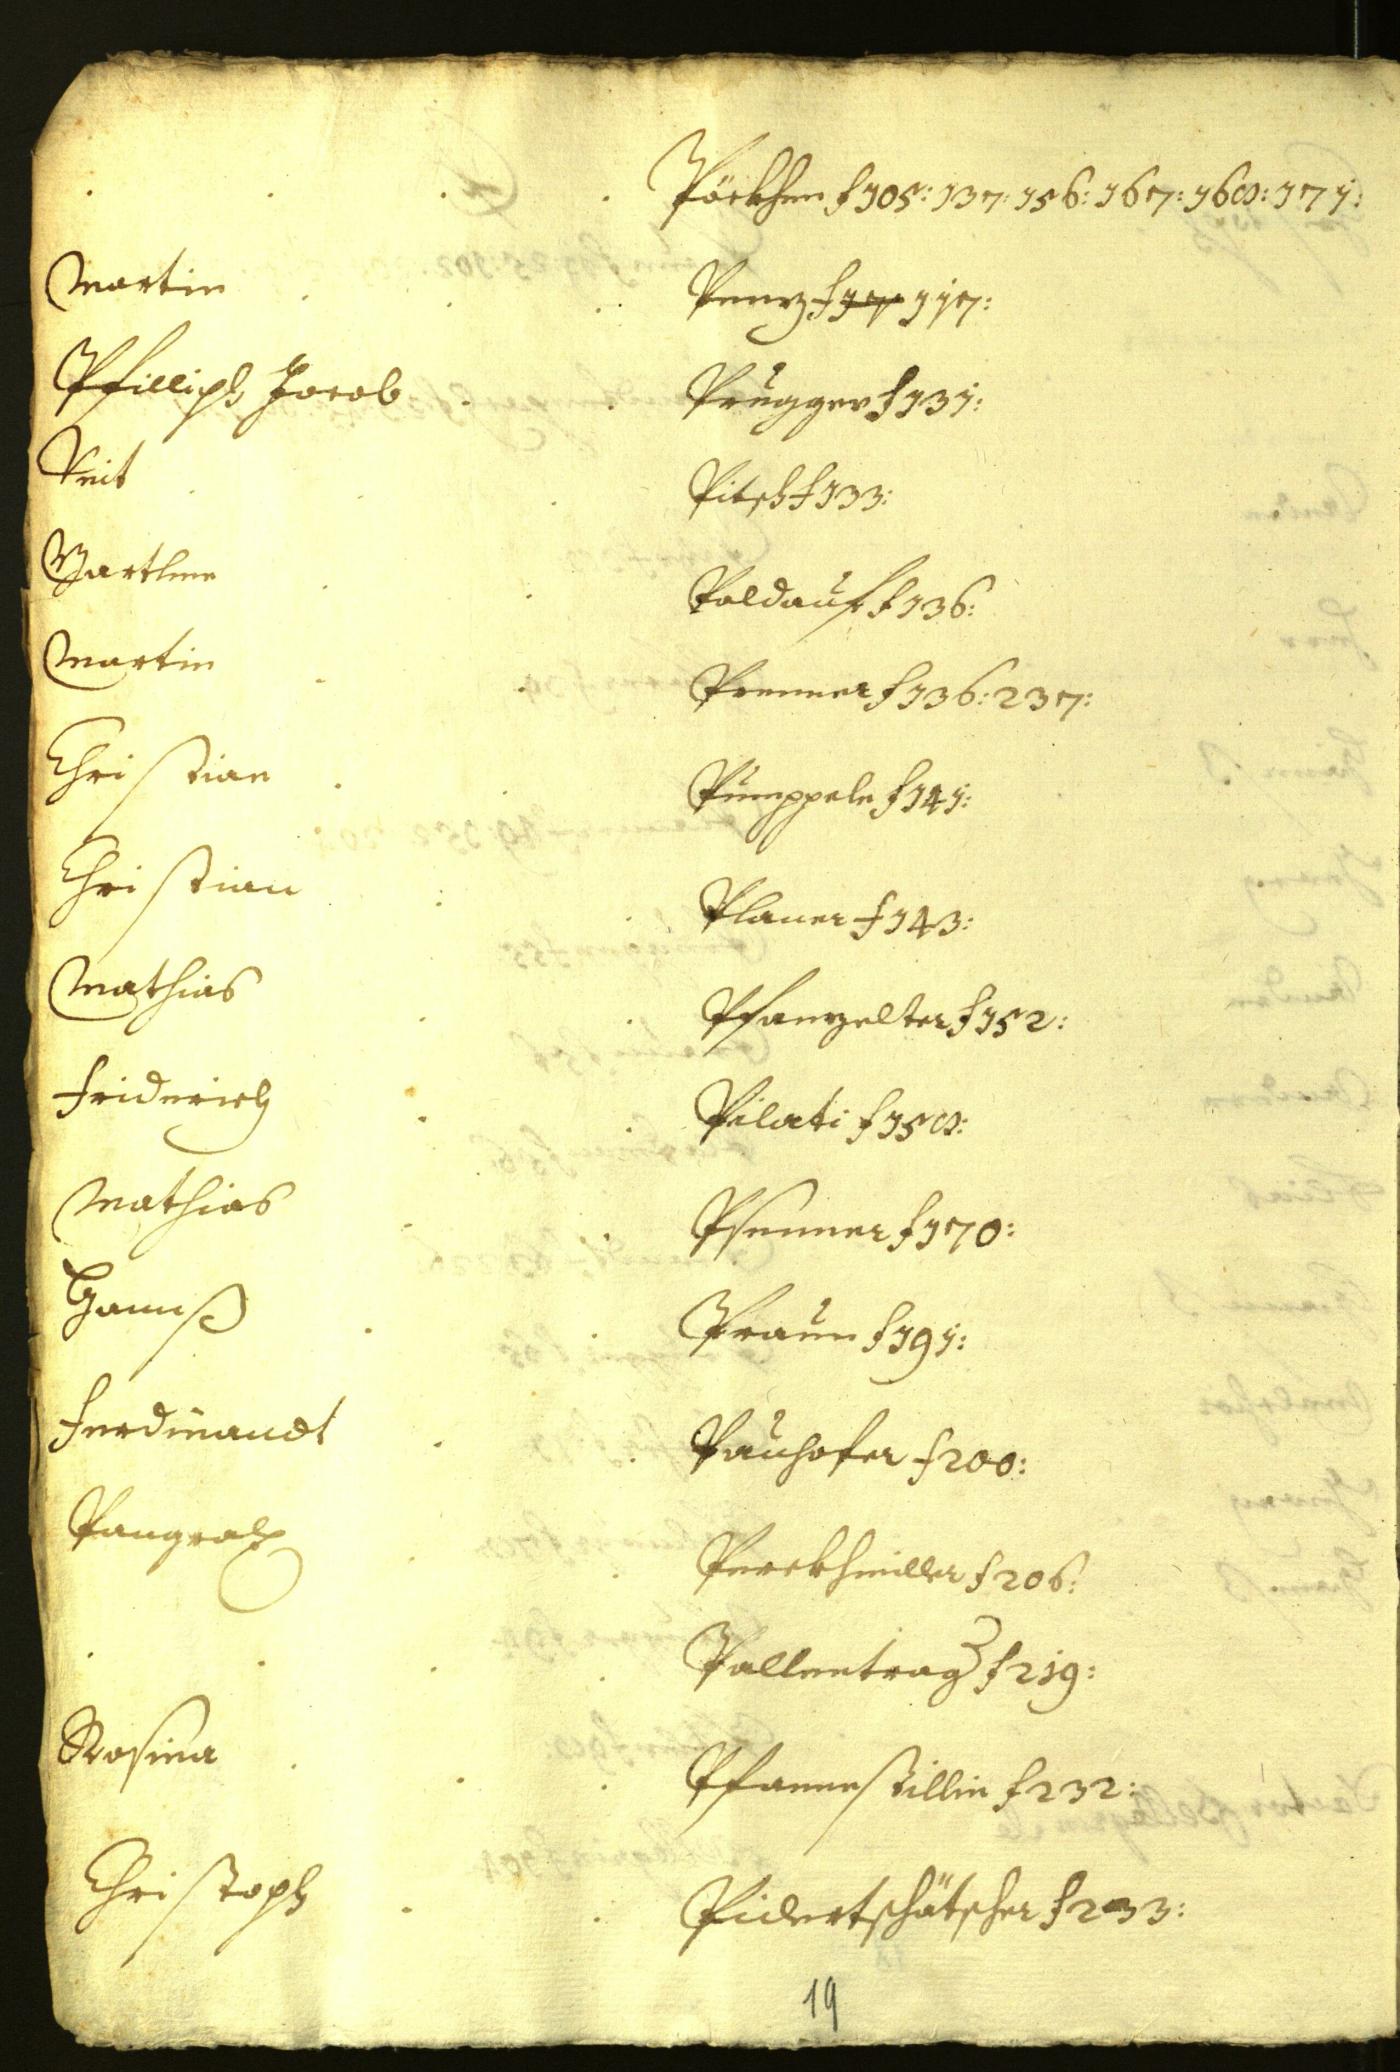 . . . . Pöckhen f 105: 137: 156: 167: 168: 171:
Martin . . Penz f 117:
Pfillipp Jacob . . Prugger f 131:
Veit . . Pitsch f 133:
Bartlme . . Paldauf f 136:
Martin . . Prenner f 136: 237:
Christian . . Pümppele f 141:
Christian : . Planer f 143:
Mathias . . Pfanzelter f 152:
Friderich . . Pilati f 158:
Mathias . . Psenner f 170:
Hannß . . Praun f 191:
Ferdinandt . . Pauhofer f 200:
Pangraz . . Perckhmiller f 206:
. . . . Pallentrag f 219:
Rosina . . . Pfannestillin f 232:
Christoph . . Pidertschätscher f 233:
19